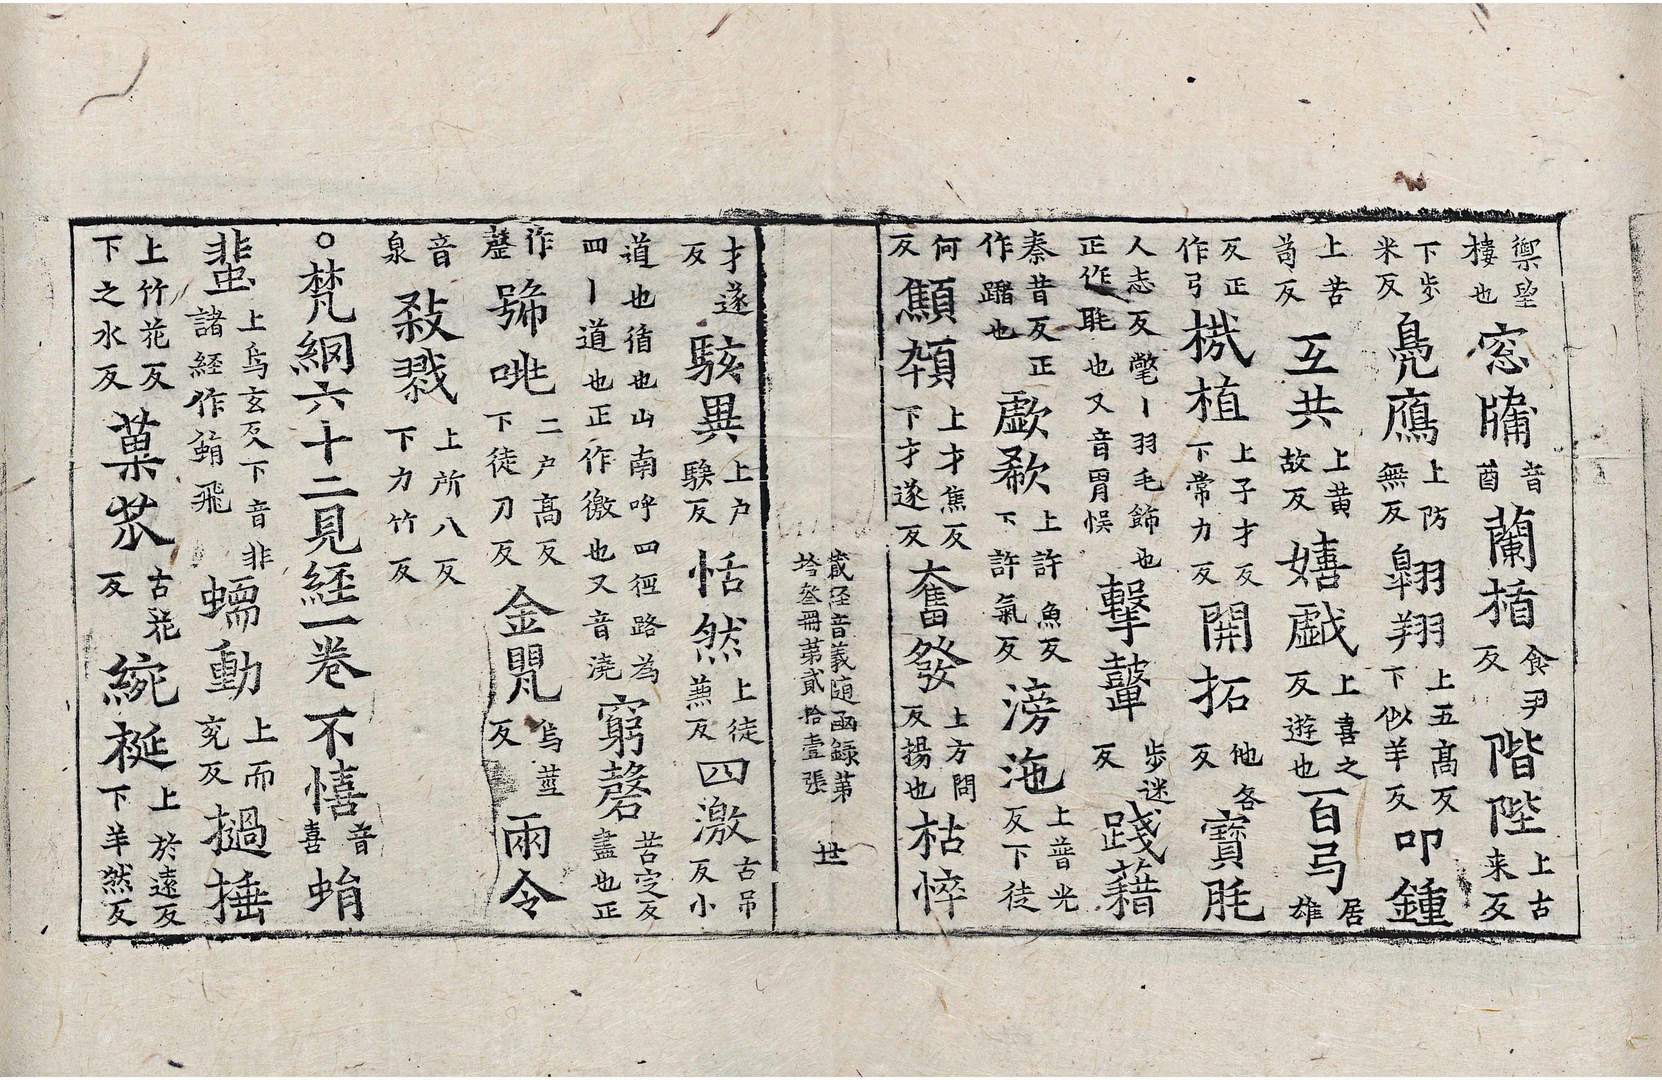 禦𡊮樓也窓牖音酉蘭楯食尹反階陛上古来反
下步米反鳧鴈上防無反翺翔上五高反下似羊反叩鍾
上苦苟反互共上黄故反嬉戯上喜之反遊也百弓居雄
反正作弓機植上子才反下常力反開拓他各反寶毦
人志反氅丨羽毛飾也正作毦也又音胃悞擊鼙步迷反踐藉
秦昔反正作踖也歔欷上許魚反下許氣反滂沲上普光反下徒
何反顦顇上才焦反下才遂反奮發上方問反揚也枯悴
蔵経音義随函録第塔叁冊第貳拾壹張 世
才遂反駭異上户騃反恬然上徒蕪反四激古吊反小
道也循也山南呼四徑路為四丨道也正作徼也又音澆窮罄苦定反盡也正
作䃘號咷二户高反下徒刀反金甖烏莖反兩令
音泉敍戮上所八反下力竹反
○梵網六十二見経一卷 不憘音喜蜎
蜚上烏玄反下音非諸経作蛸飛蠕動上而兖反撾捶
上竹花反下之水反菓苽古花反綩綖上於遠反下羊然反